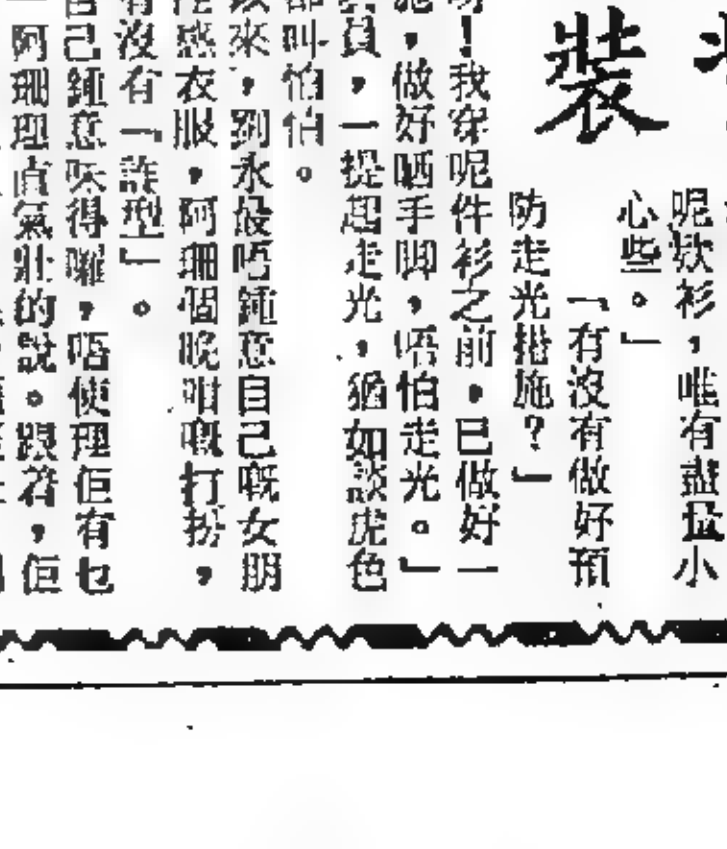 裝
呢欵衫，唯有盡量小
心些。」
「有沒有做好預
防走光措施？」
！我穿呢件衫之前，已做好一
，做好晒手脚，唔怕走光。」
員，一提起走光，猶如談虎色
叫怕怕。
來，劉永最唔鍾意自己嘅女朋
惑衣服，阿珊個晚咁嘅打扮，
沒有「詐型」。
自己鍾意咪得囉，唔使理佢有乜
阿珊理直氣壯的說。跟着，佢